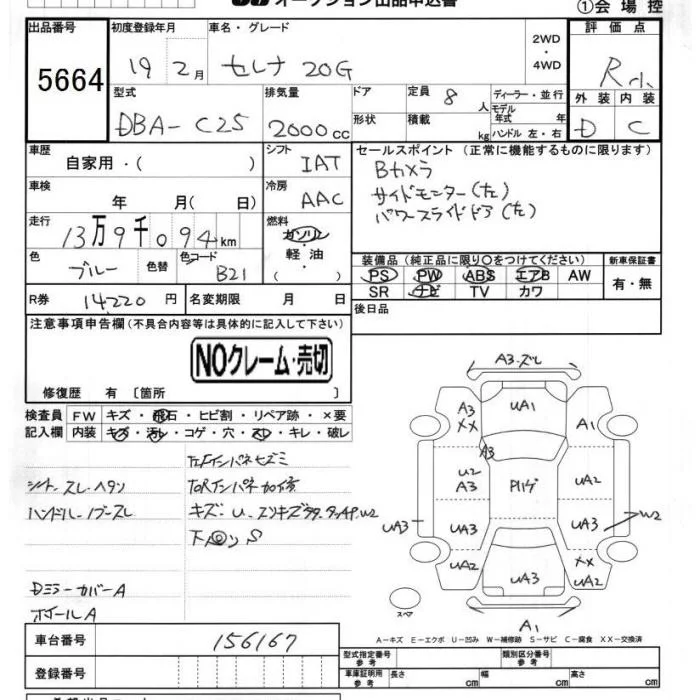 オークション出品申込書
①会場控
出品番号 初度登録年月 車名・グレード 評価点
5664 19 2月 セレナ 20G 2WD・4WD R小
型式 排気量 ドア 定員 8人 ディーラー・並行 外装 内装
DBA-C25 2000cc 形状 積載 kg モデル年式 年 ハンドル 左・右 D C
車歴 自家用・( ) シフト IAT セールスポイント (正常に機能するものに限ります)
車検 年 月( 日) 冷房 AAC Bカメラ
サイドモニター(左)
パワースライドドア(左)
走行 13万9千094km 燃料 ガソリン・軽油・( )
色 ブルー 色替 色コード B21
装備品 (純正品に限り○をつけてください) 新車保証書
PS PW ABS エアB AW 有・無
SR ナビ TV カワ
R券 14220円 名変期限 月 日 後日品
注意事項申告欄(不具合内容等は具体的に記入して下さい)
NOクレーム・売切
修復歴 有 〔箇所 〕
検査員記入欄 FW キズ・飛石・ヒビ割・リペア跡・×要
内装 キズ・汚レ・コゲ・穴・スレ・キレ・破レ
シート スレ・ヘタリ
ハンドル・ノブ・スレ
キズ:U
S
Dミラーカバー A
ホイール A
A3・ズレ
A3 XX UA1 A1
A3
U2 A3 UA2
UA3 UA3 UA3 W2
UA2 UA3 XX UA2
スペア A1
A-キズ E-エクボ U-凹み W-補修跡 S-サビ C-腐食 XX-交換済
車台番号 156167
登録番号
型式指定番号 参考 類別区分番号 参考
車庫証明用 参考 長さ cm 幅 cm 高さ cm